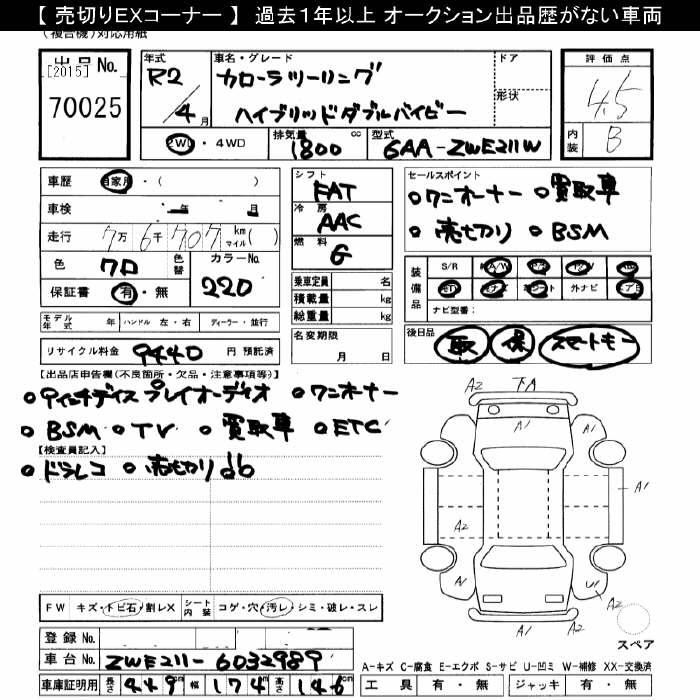 【 売切りEXコーナー 】 過去1年以上 オークション出品歴がない車両
(複合機)対応用紙
出品 No.
[2015]
70025
年式
R2/4月
車名・グレード
カローラツーリング
ハイブリッドダブルバイビー
ドア
形状
評価点
4.5
内装
B
2WD・4WD
排気量
1800 cc
型式
6AA-ZWE211W
車歴 自家用・( )
車検 年 月
走行 7万6千707 km マイル( )
色 クロ 色替 カラーNo. 220
保証書 有・無
シフト
FAT
冷房
AAC
燃料
G
セールスポイント
○ワンオーナー ○買取車
○売切り ○BSM
装備品
S/R A/W P/S P/W ABS
外ナビ
ナビ型番:
乗車定員 名
積載量 kg
総重量 kg
モデル年式 年 ハンドル 左・右 ディーラー・並行
リサイクル料金 9440 円 預託済
名変期限
月 日
後日品
取 保 スマートキー
【出品店申告欄(不良箇所・欠品・注意事項等)】
○9インチディスプレイオーディオ ○ワンオーナー
○BSM ○TV ○買取車 ○ETC
【検査員記入】
○ドラレコ ○売切り
A2 下A
A1
A2
A1
U1
A1 A2
スペア
FW キズ・トビ石・割レX シート内装 コゲ・穴・汚レ・シミ・破レ・スレ
登録 No.
車台 No. ZWE211-6032989
車庫証明用 長さ 449 cm 幅 174 cm 高さ 146 cm
A-キズ C-腐食 E-エクボ S-サビ U-凹ミ W-補修 XX-交換済
工具 有・無 ジャッキ 有・無